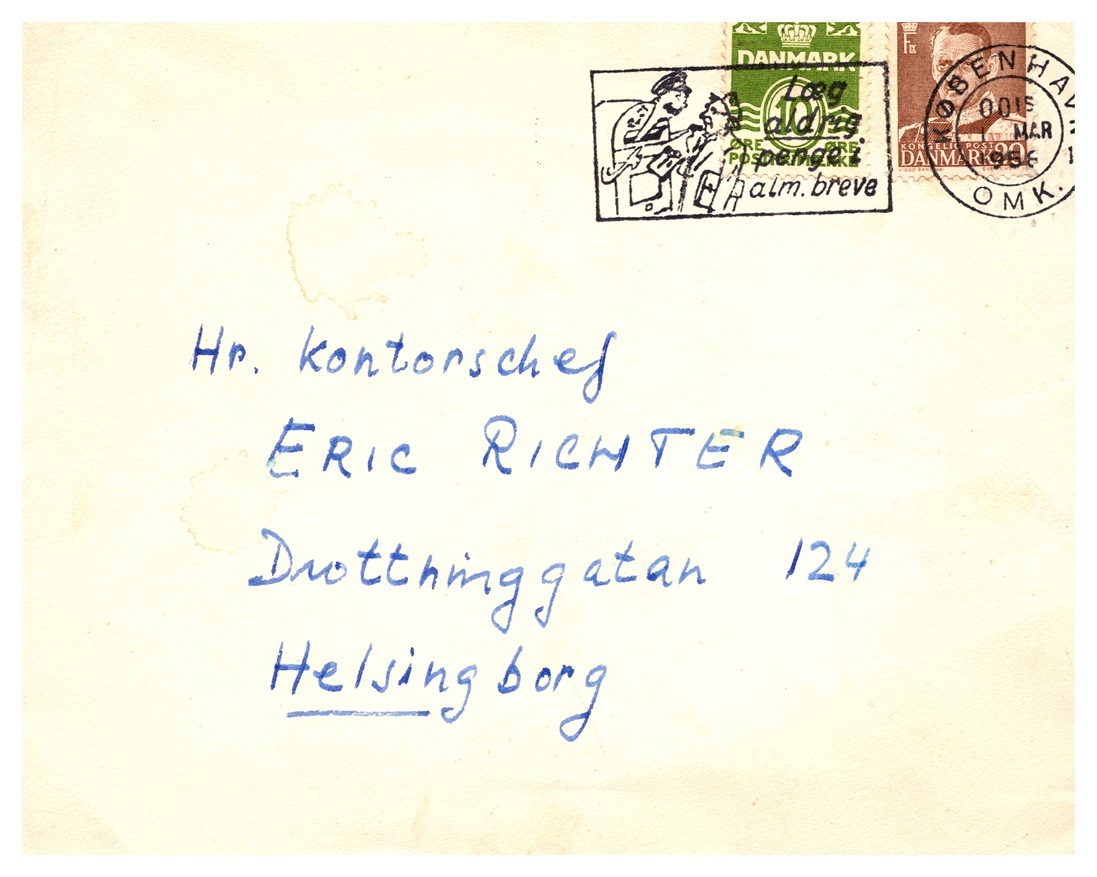 DANMARK
10
ØRE ØRE
Læg
aldrig
penge i
alm. breve
KONGELIG POST
DANMARK 20
KØBENHAV
OMK.
0015
MAR
Hr. Kontorschef
ERIC RICHTER
Drottninggatan 124
Helsingborg